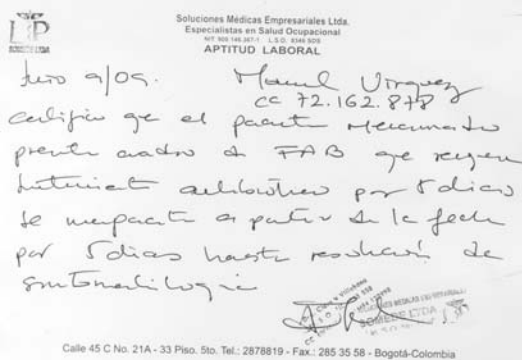 Soluciones Médicas Empresariales Ltda.
Especialistas en Salud Ocupacional
APTITUD LABORAL
9/09. Manuel Virguez
cc 72.162.878
certifico que el paciente mencionado
presenta cuadro de FAB que requiere
tratamiento antibiótico por 5 dias
se incapacita a partir de la fecha
por 5 dias hasta resolución de
sintomatología
SOMEDE LTDA
Calle 45 C No. 21A - 33 Piso. 5to. Tel.: 2878819 - Fax.: 285 35 58 - Bogotá-Colombia